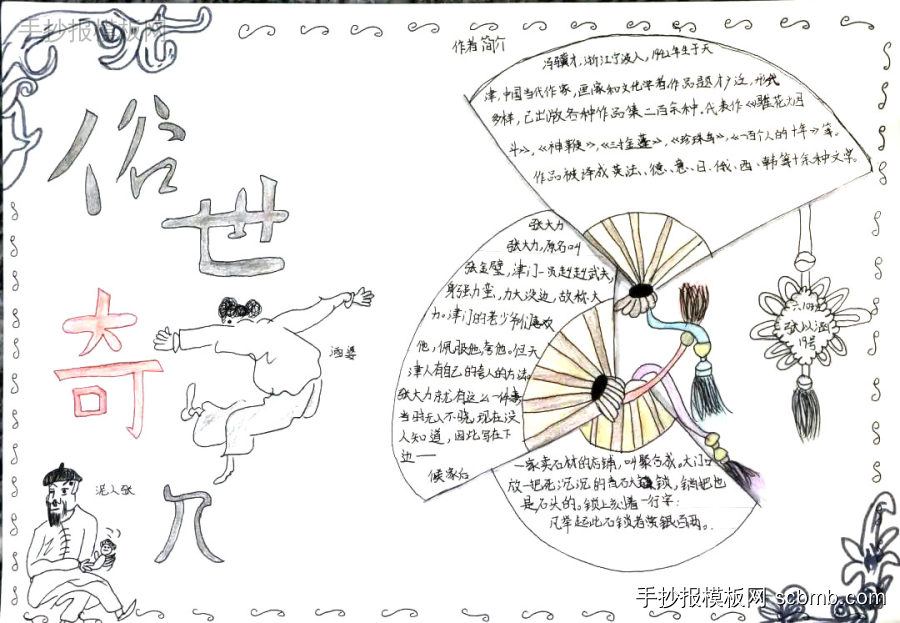 手抄报模板网
俗世奇人
作者简介
冯骥才，浙江宁波人，1942年生于天
津，中国当代作家，画家和文化学者作品题才广泛，形式
多样，已出版各种作品集二百余种。代表作《雕花烟
斗》，《神鞭》，《三寸金莲》，《珍珠鸟》，《一百个人的十年》等。
作品被译成英法、德、意、日、俄、西、韩等十余种文字。
张大力
张大力，原名叫
张金璧，津门一员赳赳武夫，
身强力蛮，力大没边，故称大
力。津门的老少爷们喜欢
他，佩服他，夸他。但天
津人有自己的夸人的方法。
张大力就有这么一件事
当时无人不晓，现在没
人知道，因此写在下
边——
侯家后
一家卖石材的店铺，叫聚合成。大门口
放一把死沉沉的青石大锁，锁把也
是石头的。锁上刻着一行字：
凡举起此石锁者赏银百两。
酒婆
泥人张
张以涵
19号
手抄报模板网 scbmb.com